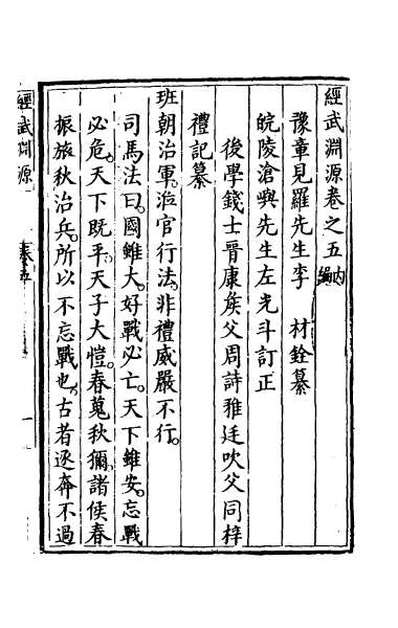 經武淵源卷之五内編
豫章見羅先生李　材銓纂
皖陵滄嶼先生左光斗訂正
後學錢士晉康矦父周詩雅廷吹父同梓
禮記纂
班朝治軍。涖官行法。非禮威嚴不行。
司馬法曰。國雖大。好戰必亡。天下雖安。忘戰
必危。天下既平。天子大愷。春蒐秋獮。諸侯春
振旅秋治兵。所以不忘戰也。古者逐奔不過
經武淵源
卷五
一